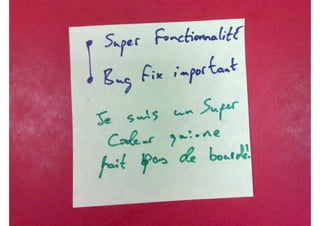 Super Fonctionnalité
Bug Fix important
Je suis un Super
Codeur qui ne
fait pas de bourde.